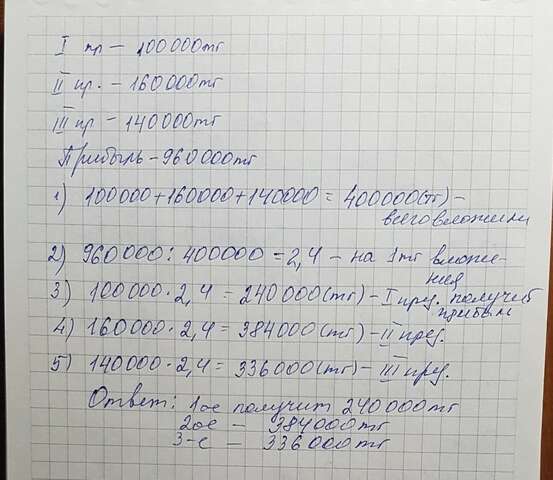 I пр — 100000тг
II пр. — 160000тг
III пр — 140000тг
Прибыль — 960000тг
1) 100000 + 160000 + 140000 = 400000 (тг) —
всего вложили
2) 960000 : 400000 = 2,4 — на 1тг вложе-
ния
3) 100000 · 2,4 = 240000 (тг) — I пред. получит
прибыль
4) 160000 · 2,4 = 384000 (тг) — II пред.
5) 140000 · 2,4 = 336000 (тг) — III пред.
Ответ: 1ое получит 240000тг
2ое — 384000тг
3-е — 336000тг